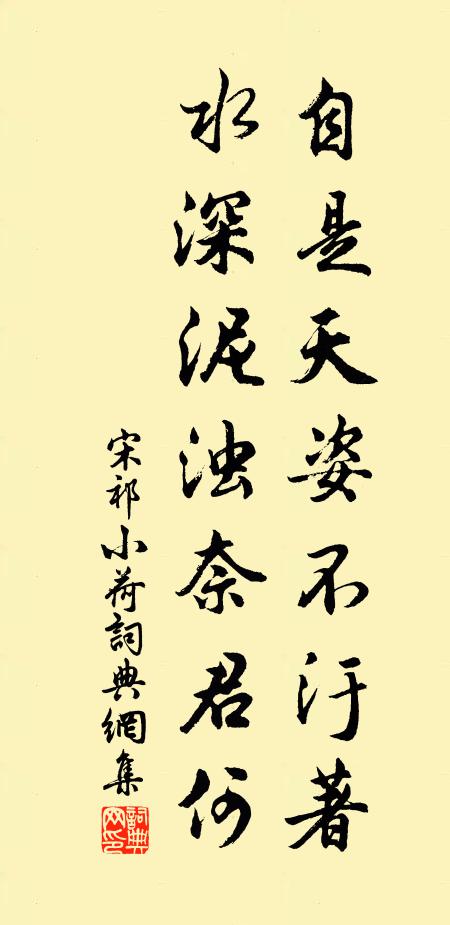 自是天姿不汙著
水深泥浊奈君何
宋祁小荷詞典網集
詞典网印